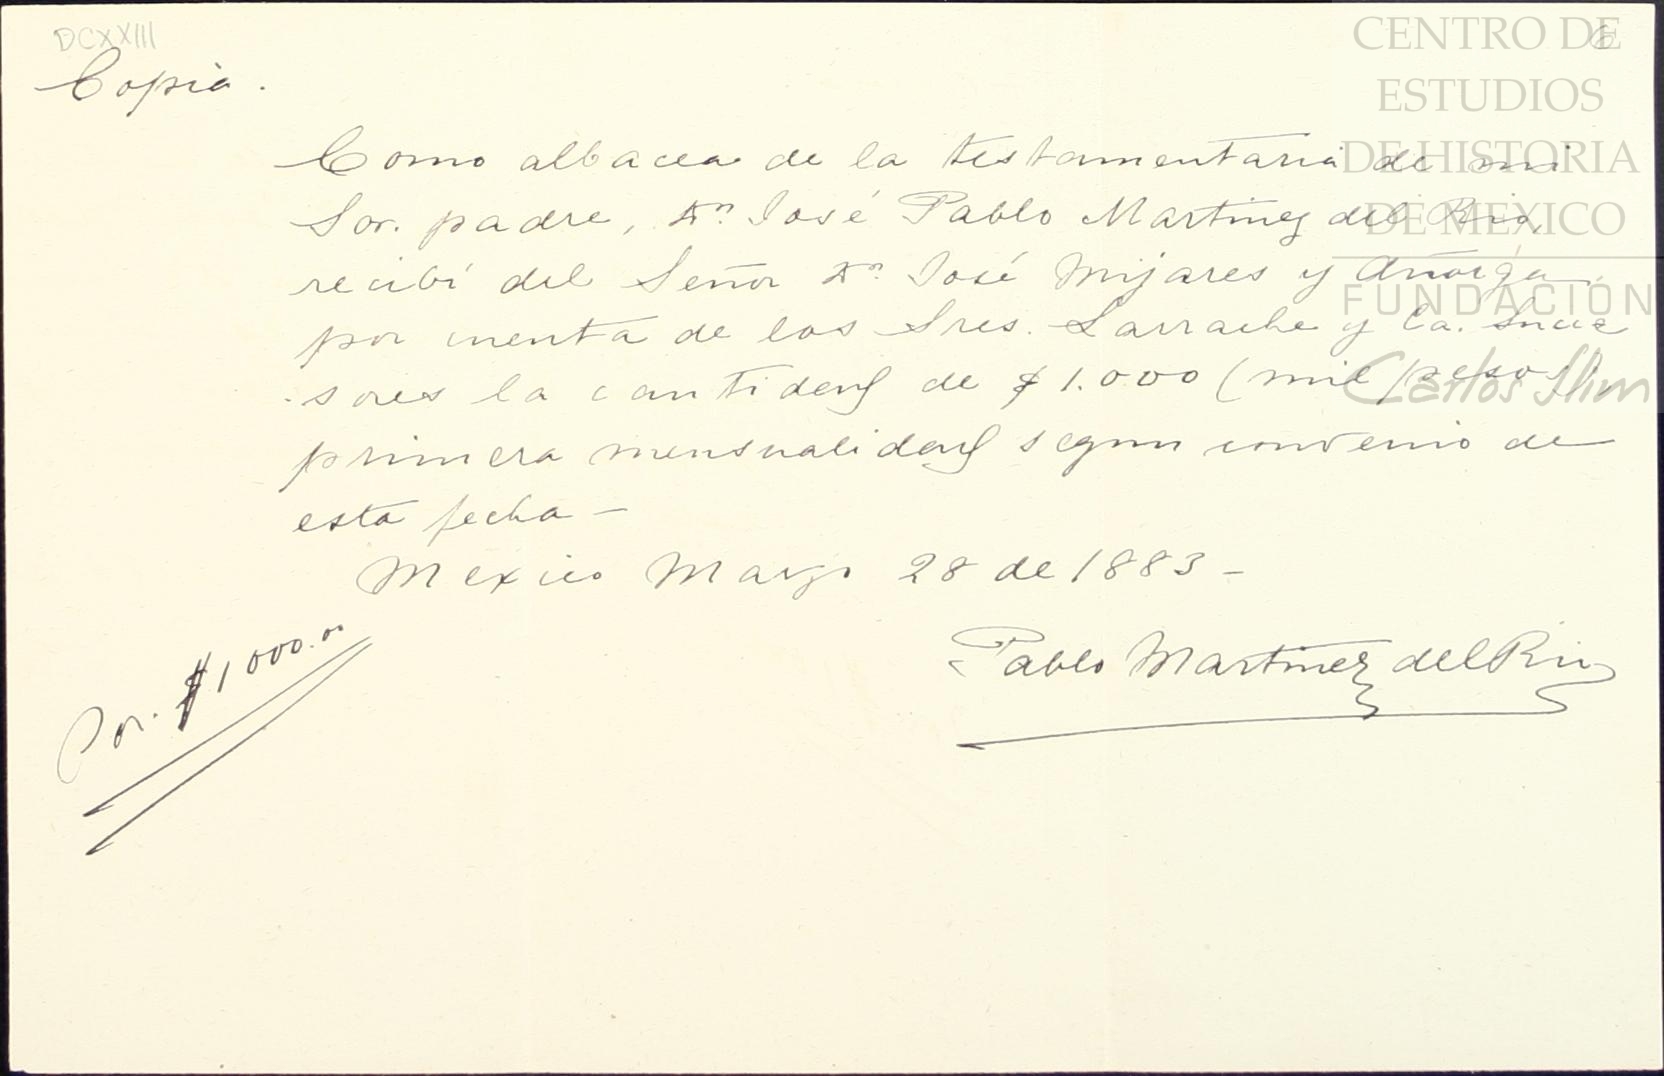 DCXXIII
6
Copia.
Como albacea de la testamentaria de mi
Sor. padre, Dn. José Pablo Martinez del Rio,
recibí del Señor Dn. José Mijares y Añorga
por cuenta de los Sres. Larrache y Ca. Suce
sores la cantidad de $1.000 (mil pesos),
primera mensualidad segun convenio de
esta fecha -
Mexico Marzo 28 de 1883 -
Pablo Martinez del Rio
Por. $1000.00
CENTRO DE
ESTUDIOS
DE HISTORIA
DE MEXICO
FUNDACIÓN
Carlos Slim